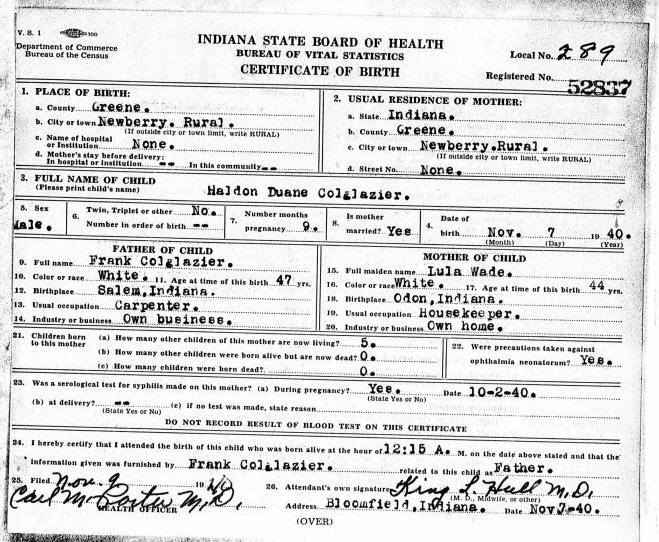 V. S. 1
Department of Commerce
Bureau of the Census
INDIANA STATE BOARD OF HEALTH
BUREAU OF VITAL STATISTICS
CERTIFICATE OF BIRTH
Local No. 289
Registered No. 52837
1. PLACE OF BIRTH:
a. County Greene.
b. City or town Newberry. Rural.
(If outside city or town limit, write RURAL)
c. Name of hospital
or Institution None.
d. Mother's stay before delivery:
In hospital or institution -- In this community --
2. USUAL RESIDENCE OF MOTHER:
a. State Indiana.
b. County Greene.
c. City or town Newberry.Rural.
(If outside city or town limit, write RURAL)
d. Street No. None.
3. FULL NAME OF CHILD
(Please print child's name) Haldon Duane Colglazier.
5. Sex Male.
6. Twin, Triplet or other No.
Number in order of birth --
7. Number months
pregnancy 9.
8. Is mother
married? Yes
4. Date of
birth Nov. 7 1940.
(Month) (Day) (Year)
FATHER OF CHILD
9. Full name Frank Colglazier.
10. Color or race White. 11. Age at time of this birth 47 yrs.
12. Birthplace Salem,Indiana.
13. Usual occupation Carpenter.
14. Industry or business Own business.
MOTHER OF CHILD
15. Full maiden name Lula Wade.
16. Color or race White. 17. Age at time of this birth 44 yrs.
18. Birthplace Odon,Indiana.
19. Usual occupation Housekeeper.
20. Industry or business Own home.
21. Children born
to this mother
(a) How many other children of this mother are now living? 5.
(b) How many other children were born alive but are now dead? 0.
(c) How many children were born dead? 0.
22. Were precautions taken against
ophthalmia neonatorum? Yes.
23. Was a serological test for syphilis made on this mother? (a) During pregnancy? Yes. Date 10-2-40.
(State Yes or No)
(b) at delivery? -- (c) if no test was made, state reason
(State Yes or No)
DO NOT RECORD RESULT OF BLOOD TEST ON THIS CERTIFICATE
24. I hereby certify that I attended the birth of this child who was born alive at the hour of 12:15 A. M. on the date above stated and that the
information given was furnished by Frank Colglazier. related to this child as Father.
25. Filed Nov. 9 1940
Carl M. Porter M.D.
HEALTH OFFICER
26. Attendant's own signature King L. Hull M.D.
(M. D., Midwife, or other)
Address Bloomfield,Indiana. Date Nov 7-40.
(OVER)